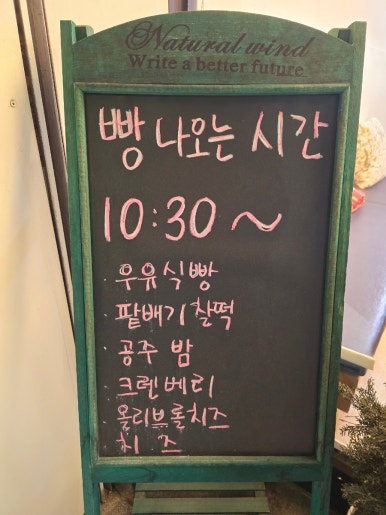 Natural wind
Write a better future
빵 나오는 시간
10:30 ~
· 우유식빵
· 팥배기찰떡
· 공주 밤
· 크렌베리
· 올리브롤치즈
· 치 즈